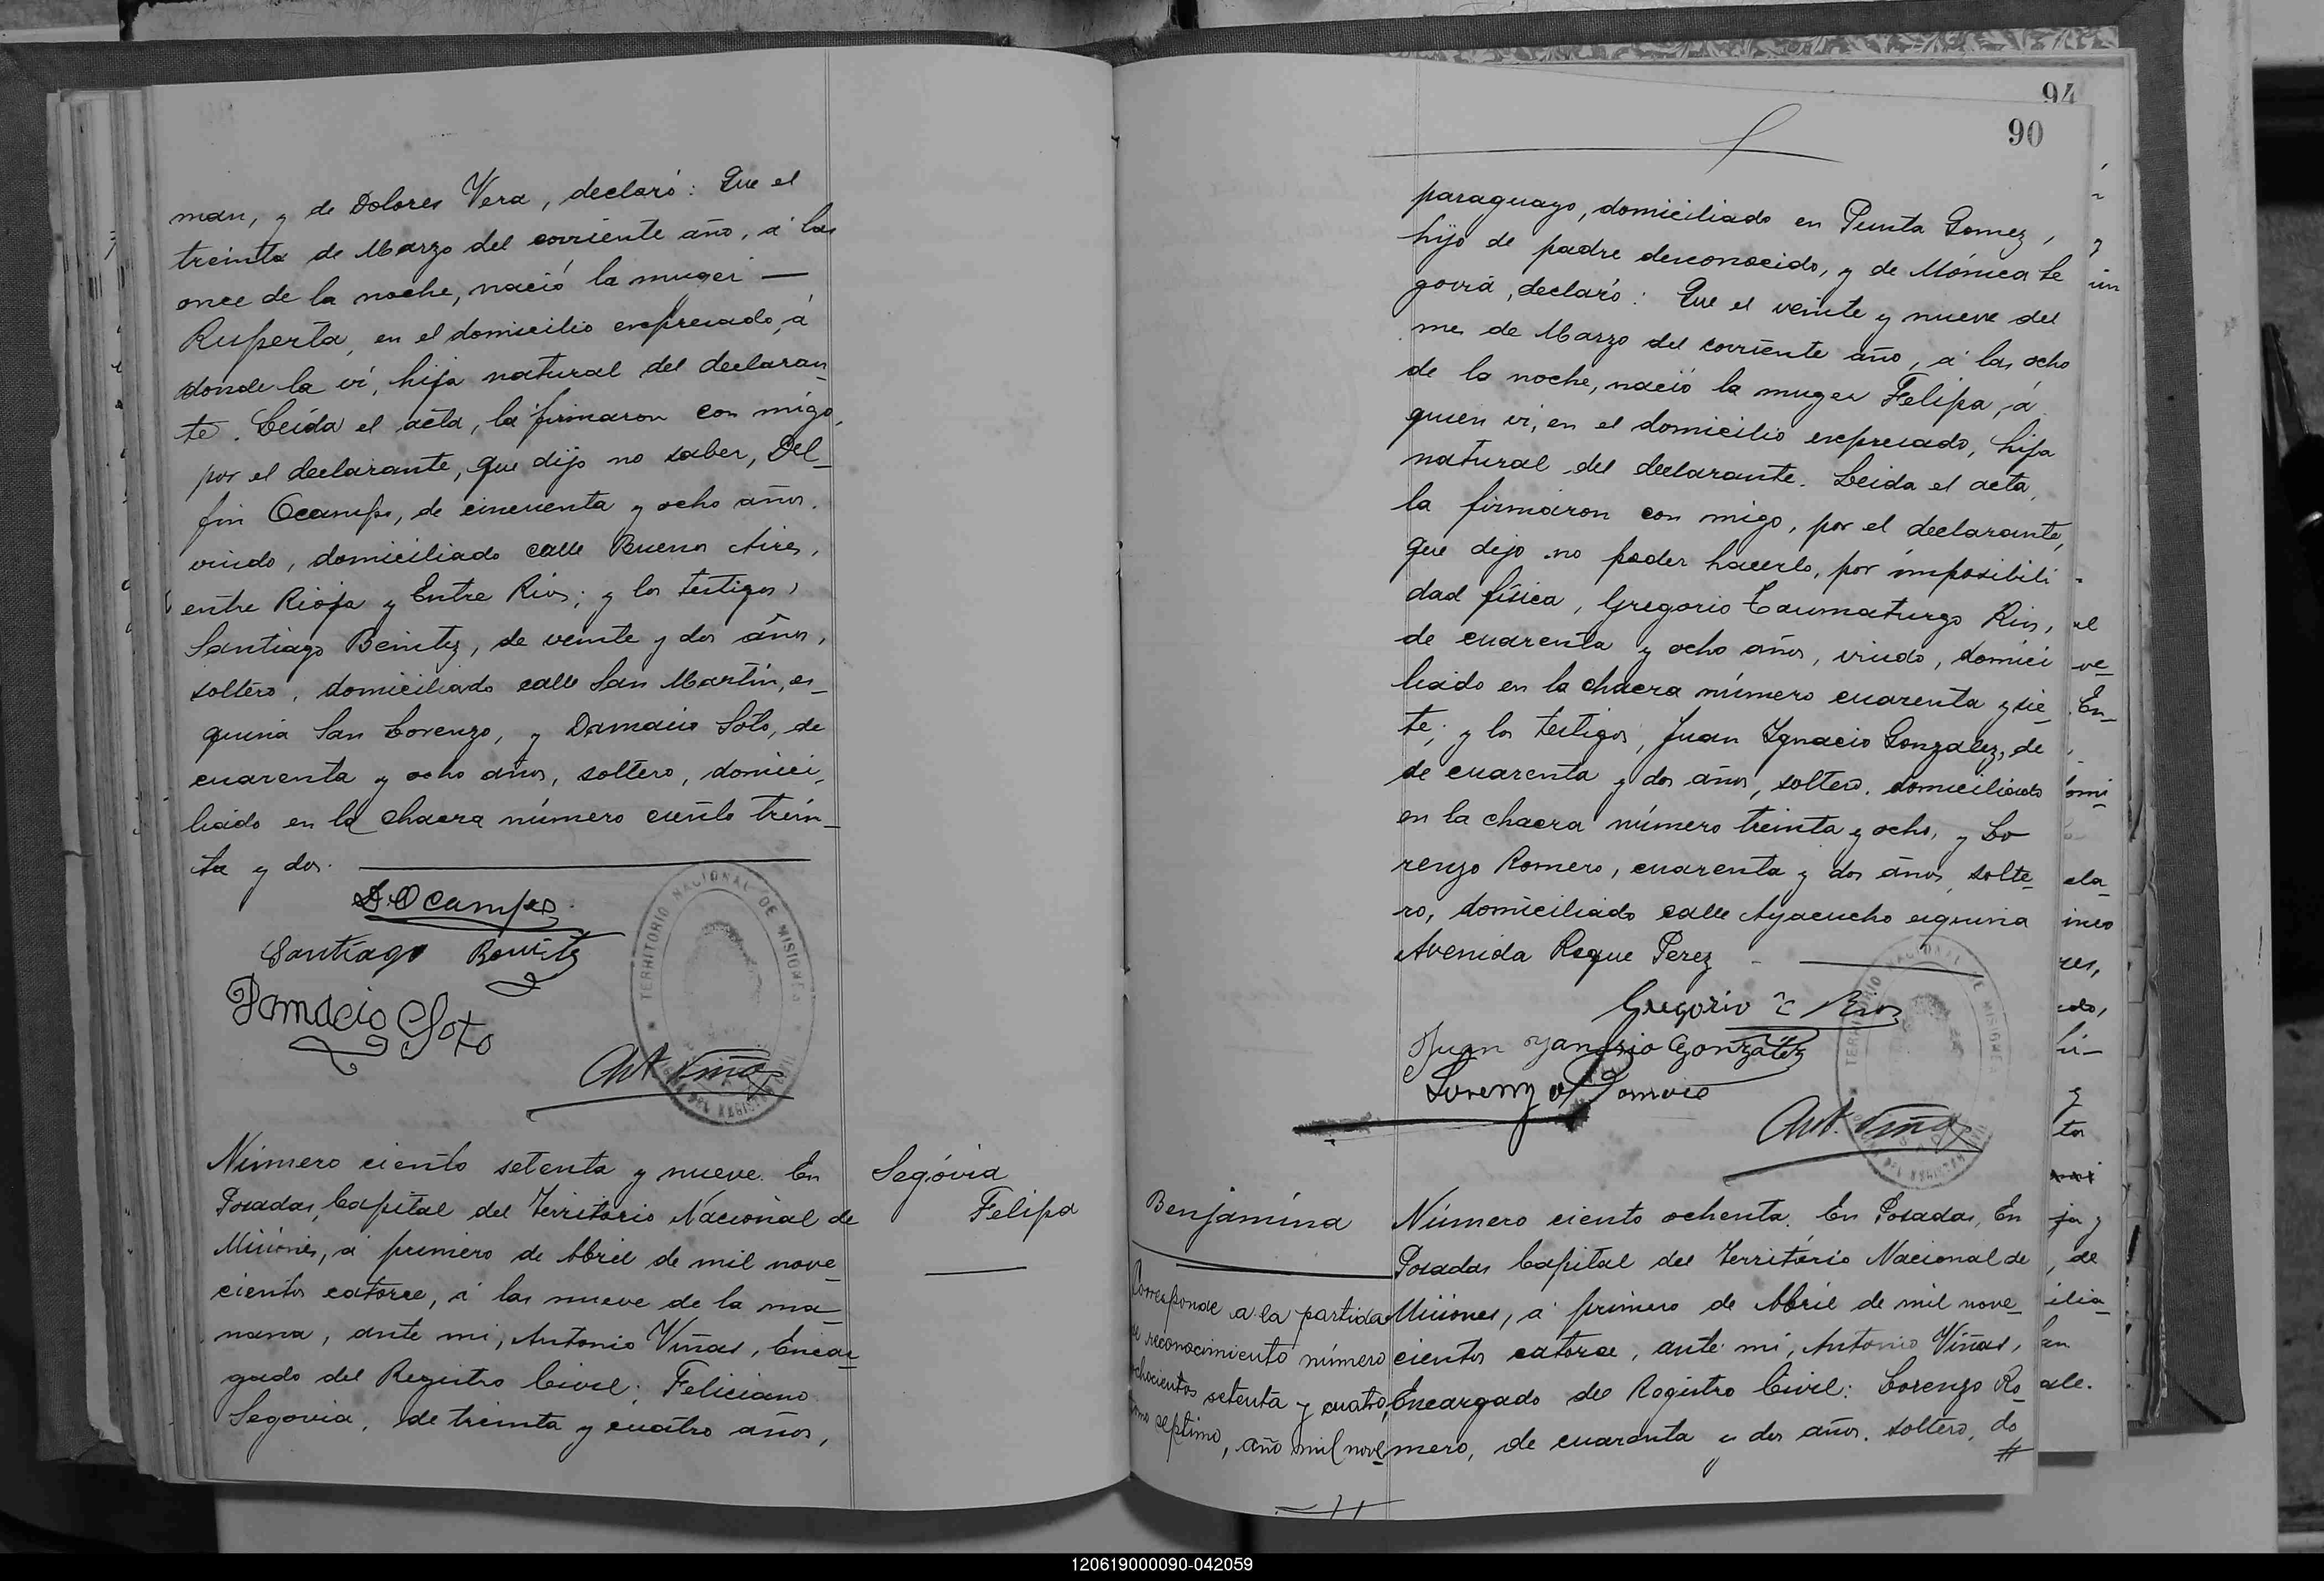 man, y de Dolores Vera, declaró: Que el
treinta de Marzo del corriente año, á las
once de la noche, nació la muger —
Ruperta, en el domicilio expresado, á
donde la ví, hija natural del declaran_
te. Leída el acta, la firmaron con migo,
por el declarante, que dijo no saber, Del_
fin Ocampo, de cincuenta y ocho años,
viudo, domiciliado calle Buenos Aires,
entre Rioja y Entre Rios; y los testigos,
Santiago Benitez, de veinte y dos años,
soltero, domiciliado calle San Martín, es_
quina San Lorenzo, y Damacio Soto, de
cuarenta y ocho años, soltero, domici_
liado en la chacra número ciento trein_
ta y dos.
D. Ocampo
Santiago Benitez
Damacio Soto
Ant. Viñas
TERRITORIO NACIONAL DE MISIONES
Número ciento setenta y nueve. En
Posadas, Capital del Territorio Nacional de
Misiones, á primero de Abril de mil nove_
cientos catorce, á las nueve de la ma_
nana, ante mi, Antonio Viñas, Encar_
gado del Registro Civil: Feliciano
Segovia, de treinta y cuatro años,
Segóvia
Felipa
94
90
paraguayo, domiciliado en Punta Gomez,
hijo de padre desconocido, y de Mónica Se
govia, declaró: Que el veinte y nueve del
mes de Marzo del corriente año, á las ocho
de la noche, nació la muger Felipa, á
quien ví, en el domicilio expresado, hija
natural del declarante. Leida el acta,
la firmaron con migo, por el declarante,
que dijo no poder hacerlo, por imposibili
dad física, Gregorio Taumaturgo Rios,
de cuarenta y ocho años, viudo, domici
liado en la chacra número cuarenta y sie_
te; y los testigos, Juan Ygnacio Gonzalez, de
de cuarenta y dos años, soltero, domiciliado
en la chacra número treinta y ocho, y Lo
renzo Romero, cuarenta y dos años, solte_
ro, domiciliado calle Ayacucho esquina
Avenida Roque Perez
Gregorio T. Rios
Juan Ygnasio Gonzalez
Lorenzo Romero
Ant. Viñas
TERRITORIO NACIONAL DE MISIONES
Benjamína
Corresponde a la partida
de reconocimiento número
ochocientos setenta y cuatro,
tomo séptimo, año mil nove_
Número ciento ochenta. En Posadas, En
Posadas Capital del Territorio Nacional de
Misiones, á primero de Abril de mil nove_
cientos catorce, ante mi, Antonio Viñas,
Encargado del Registro Civil: Lorenzo Ro_
mero, de cuarenta y dos años, soltero, do
120619000090-042059